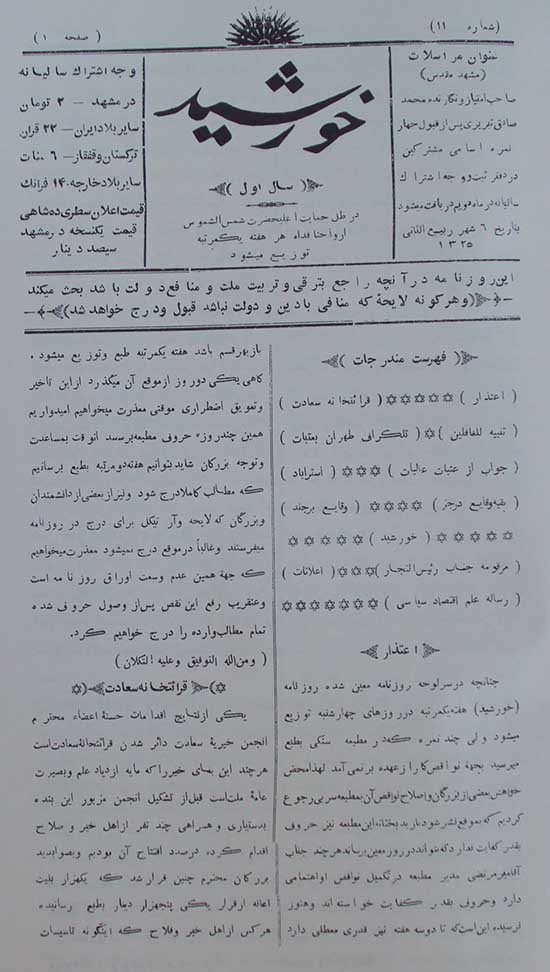 (شماره ۱۱)
(صفحه ۱)
عنوان مراسلات
(مشهد مقدس)
صاحب امتیاز و نگارنده محمد
صادق تبریزی پس از قبول چهار
نمره اسامی مشترکین
در دفتر ثبت و وجه اشتراك
سالیانه در ماه دویم دریافت میشود
بتاریخ ۶ شهر ربیع الثانی
۱۳۲۵
خورشید
(سال اول)
در ظل حمایت اعلیحضرت شمس الشموس
ارواحنا فداه هر هفته یکمرتبه
توزیع میشود
وجه اشتراك سالیانه
در مشهد — ۲ تومان
سایر بلاد ایران — ۲۲ قران
ترکستان و قفقاز — ۶ منات
سایر بلاد خارجه ۱۴ فرانك
قیمت اعلان سطری ده شاهی
قیمت یکنسخه در مشهد
سیصد دینار
این روزنامه در آنچه راجع بترقی و تربیت ملت و منافع دولت باشد بحث میکند
(وهرگونه لایحهٔ که منافی با دین و دولت نباشد قبول و درج خواهد شد)
(فهرست مندرجات)
(اعتذار) (قرائتخانه سعادت)
(تنبیه للغافلین) (تلگراف طهران بعتبات)
(جواب از عتبات عالیات) (استراباد)
(بقیه وقایع درجز) (وقایع بیرجند)
(خورشید)
(مرقومه جناب رئیس التجار) (اعلانات)
(رساله علم اقتصاد سیاسی)
اعتذار
چنانچه در سرلوحه روزنامه معین شده روزنامه
(خورشید) هفته یکمرتبه در روزهای چهارشنبه توزیع
میشود ولی چند نمره که در مطبعه سنگی بطبع
میرسید بجههٔ نواقص کار از عهده بر نمی آمد لهذا محض
خواهش بعضی از بزرگان و اصلاح نواقص آن بمطبعه سربی رجوع
کردیم که بموقع نشر شود بازبدبختانه این مطبعه نیز حروف
بقدر کفایت ندارد که بتواند در روز معین برساند هر چند جناب
آقا میر مرتضی مدیر مطبعه در تکمیل نواقص اواهتمامی
دارد وحروف بقدر کفایت خواسته اند وهنوز
نرسیده این است که تا دو سه هفته نیز قدری معطلی دارد
باز بهر قسم باشد هفته یکمرتبه طبع و توزیع میشود .
گاهی یکی دو روز از موقع آن میگذرد از این تاخیر
وتعویق اضطراری موقتی معذرت میخواهیم امیدواریم
همین چند روزه حروف مطبعه برسد انوقت بمساعدت
وتوجه بزرگان شاید بتوانیم هفته دو مرتبه بطبع برسانیم
که مطالب کاملا درج شود ونیز از بعضی از دانشمندان
وبزرگان که لایحه وآرتیکل برای درج در روزنامه
میفرستند وغالباً در موقع درج نمیشود معذرت میخواهیم
که جهة همین عدم وسعت اوراق روزنامه است
وعنقریب رفع این نقص پس از وصول حروف شده
تمام مطالب وارده را درج خواهیم کرد .
(ومن الله التوفیق وعلیه التکلان)
قرائتخانه سعادت
یکی از نتایج اقدامات حسنهٔ اعضاء محترم
انجمن خیریهٔ سعادت دائر شدن قرائتخانهٔ سعادت است
هر چند این بنای خیر را که مایه ازدیاد علم و بصیرت
عامهٔ ملت است قبل از تشکیل انجمن مزبور این بنده
بدستیاری و همراهی چند نفر از اهل خیر و صلاح
اقدام کرده درصدد افتتاح آن بودیم وبصوابدید
بزرگان محترم چنین قرار شد که یکهزار بلیت
اعانه از قرار یکی پنجهزار دینار بطبع رسانیده
هرکس از اهل خیر وفلاح که اینگونه تاسیسات